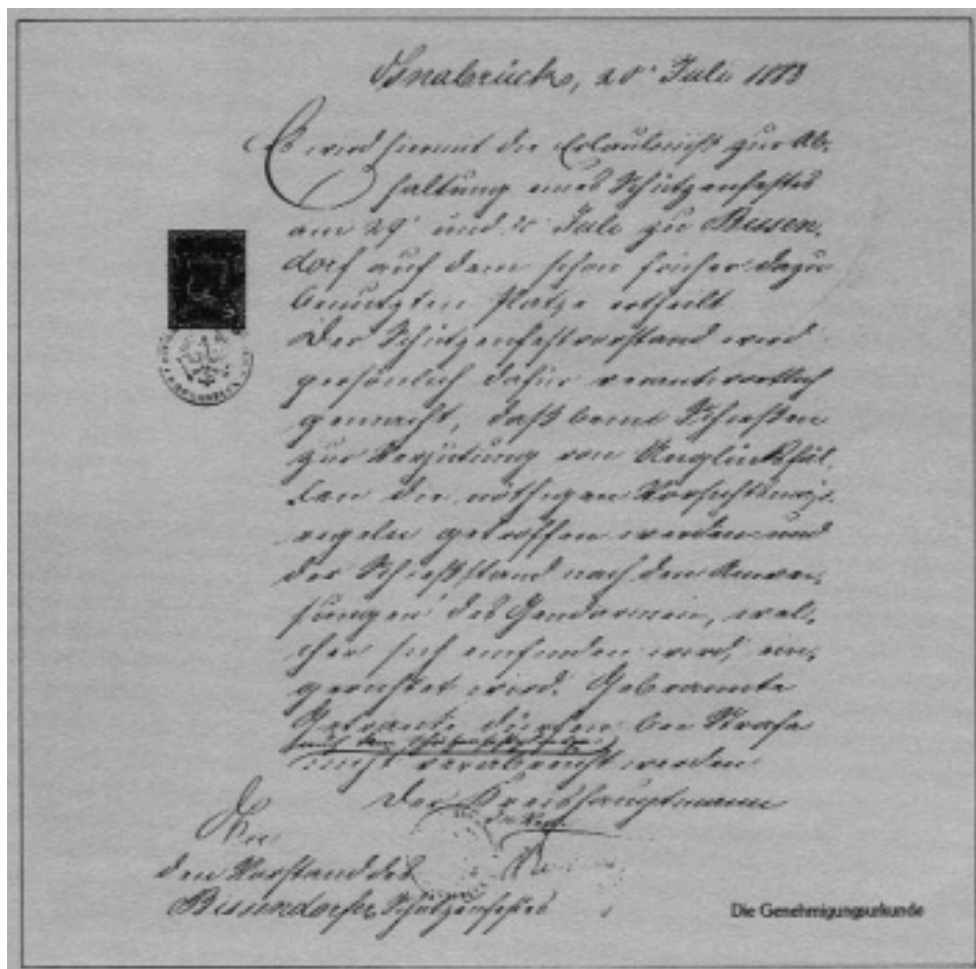 Osnabrück, 20. Juli 1883
Es wird hiermit die Erlaubniß zur Ab-
haltung eines Schützenfestes
am 29. und 30. Juli zu Bissen-
dorf auf dem schon früher dazu
benutzten Platze ertheilt
Der Schützenfestvorstand wird
persönlich dafür verantwortlich
gemacht, daß beim Schießen
zur Verhütung von Unglücksfäl-
len die nöthigen Vorsichtsmaß-
regeln getroffen werden und
der Schießstand nach den Anwei-
sungen des Gendarmen, wel-
cher sich einfinden wird, ein-
gerichtet wird. Gebrannte
Getränke dürfen bei Strafe
nicht verabreicht werden
Der Kreishauptmann
An
den Vorstand des
Bissendorfer Schützenfestes
Die Genehmigungsurkunde